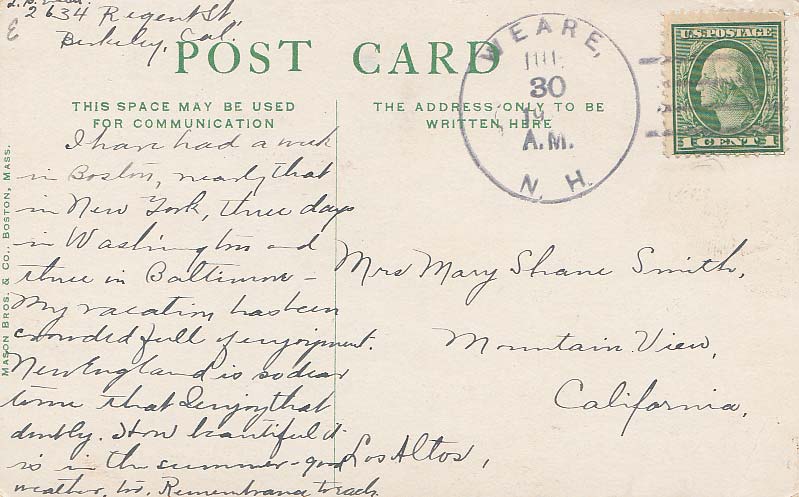 2634 Regent St,
Berkeley, Cal.
POST CARD
THIS SPACE MAY BE USED
FOR COMMUNICATION
THE ADDRESS ONLY TO BE
WRITTEN HERE
WEARE,
30
A.M.
N. H.
U.S. POSTAGE
1 CENT 1
MASON BROS. & CO., BOSTON, MASS.
I have had a week
in Boston, nearly that
in New York, three days
in Washington and
three in Baltimore –
My vacation has been
crowded full of enjoyment.
New England is so dear
to me that I enjoy that
doubly. How beautiful it
is in the summer - good
weather, too. Remembrance to each
Mrs Mary Shane Smith,
Mountain View,
California,
Los Altos,